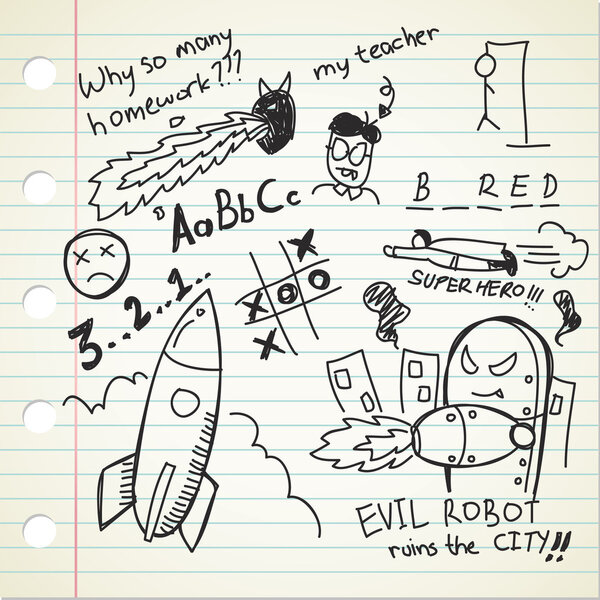 Why so many
homework???
my teacher
B _ R E D
AaBbCc
SUPER HERO!!!
3..2..1..
EVIL ROBOT
ruins the CITY!!